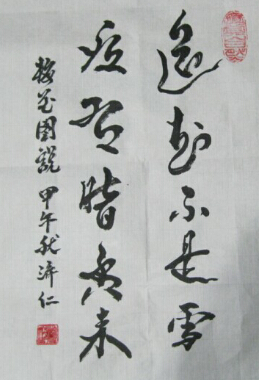 遥知不是雪
有暗香来
梅花图說 甲午秋 济仁